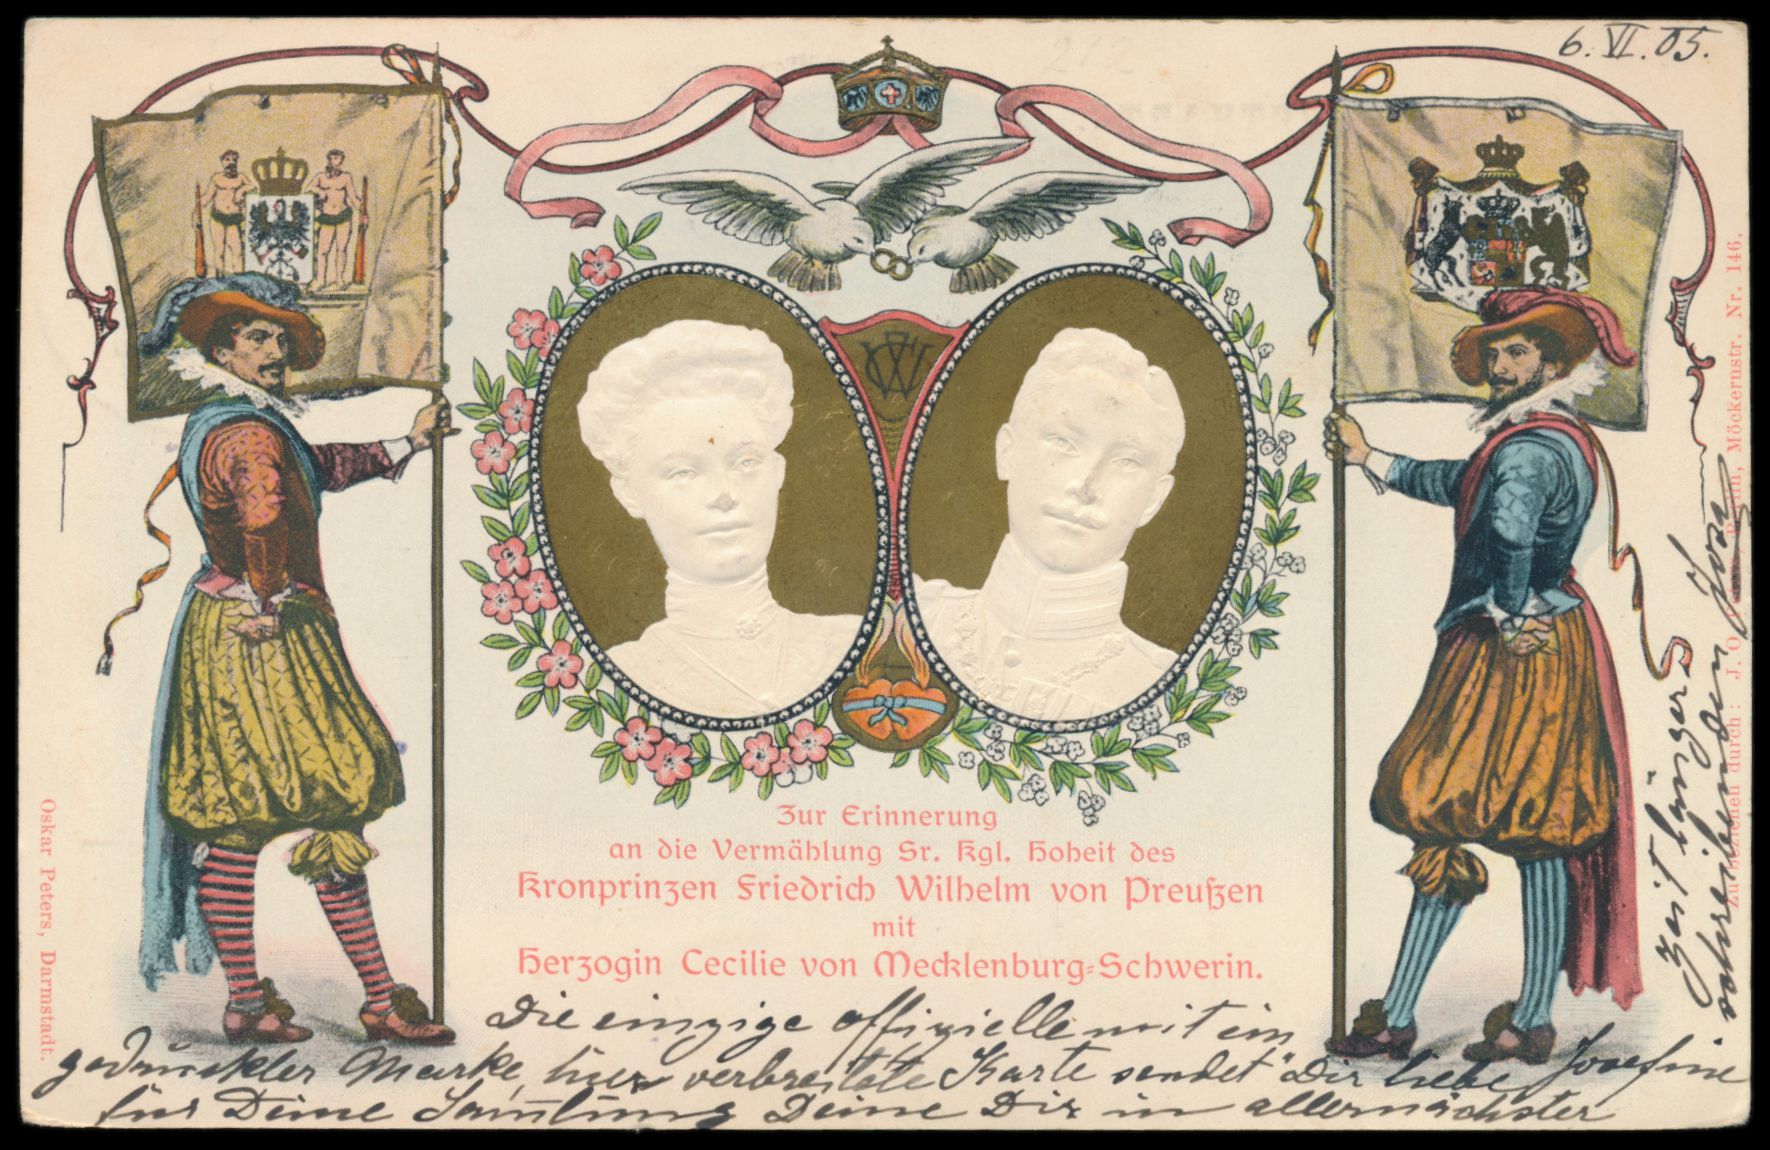 6. VI. 05.
Zur Erinnerung
an die Vermählung Sr. Kgl. Hoheit des
Kronprinzen Friedrich Wilhelm von Preußen
mit
Herzogin Cecilie von Mecklenburg-Schwerin.
Die einzige offizielle mit ein
gedruckter Marke, hier verbreitete Karte sendet Dir liebe Josefine
für Deine Samlung Deine Dir in allernächster
Zeit längers
schreibenden
Oskar Peters, Darmstadt.
Zu beziehen durch: J. O. Berlin, Möckernstr. Nr. 146.